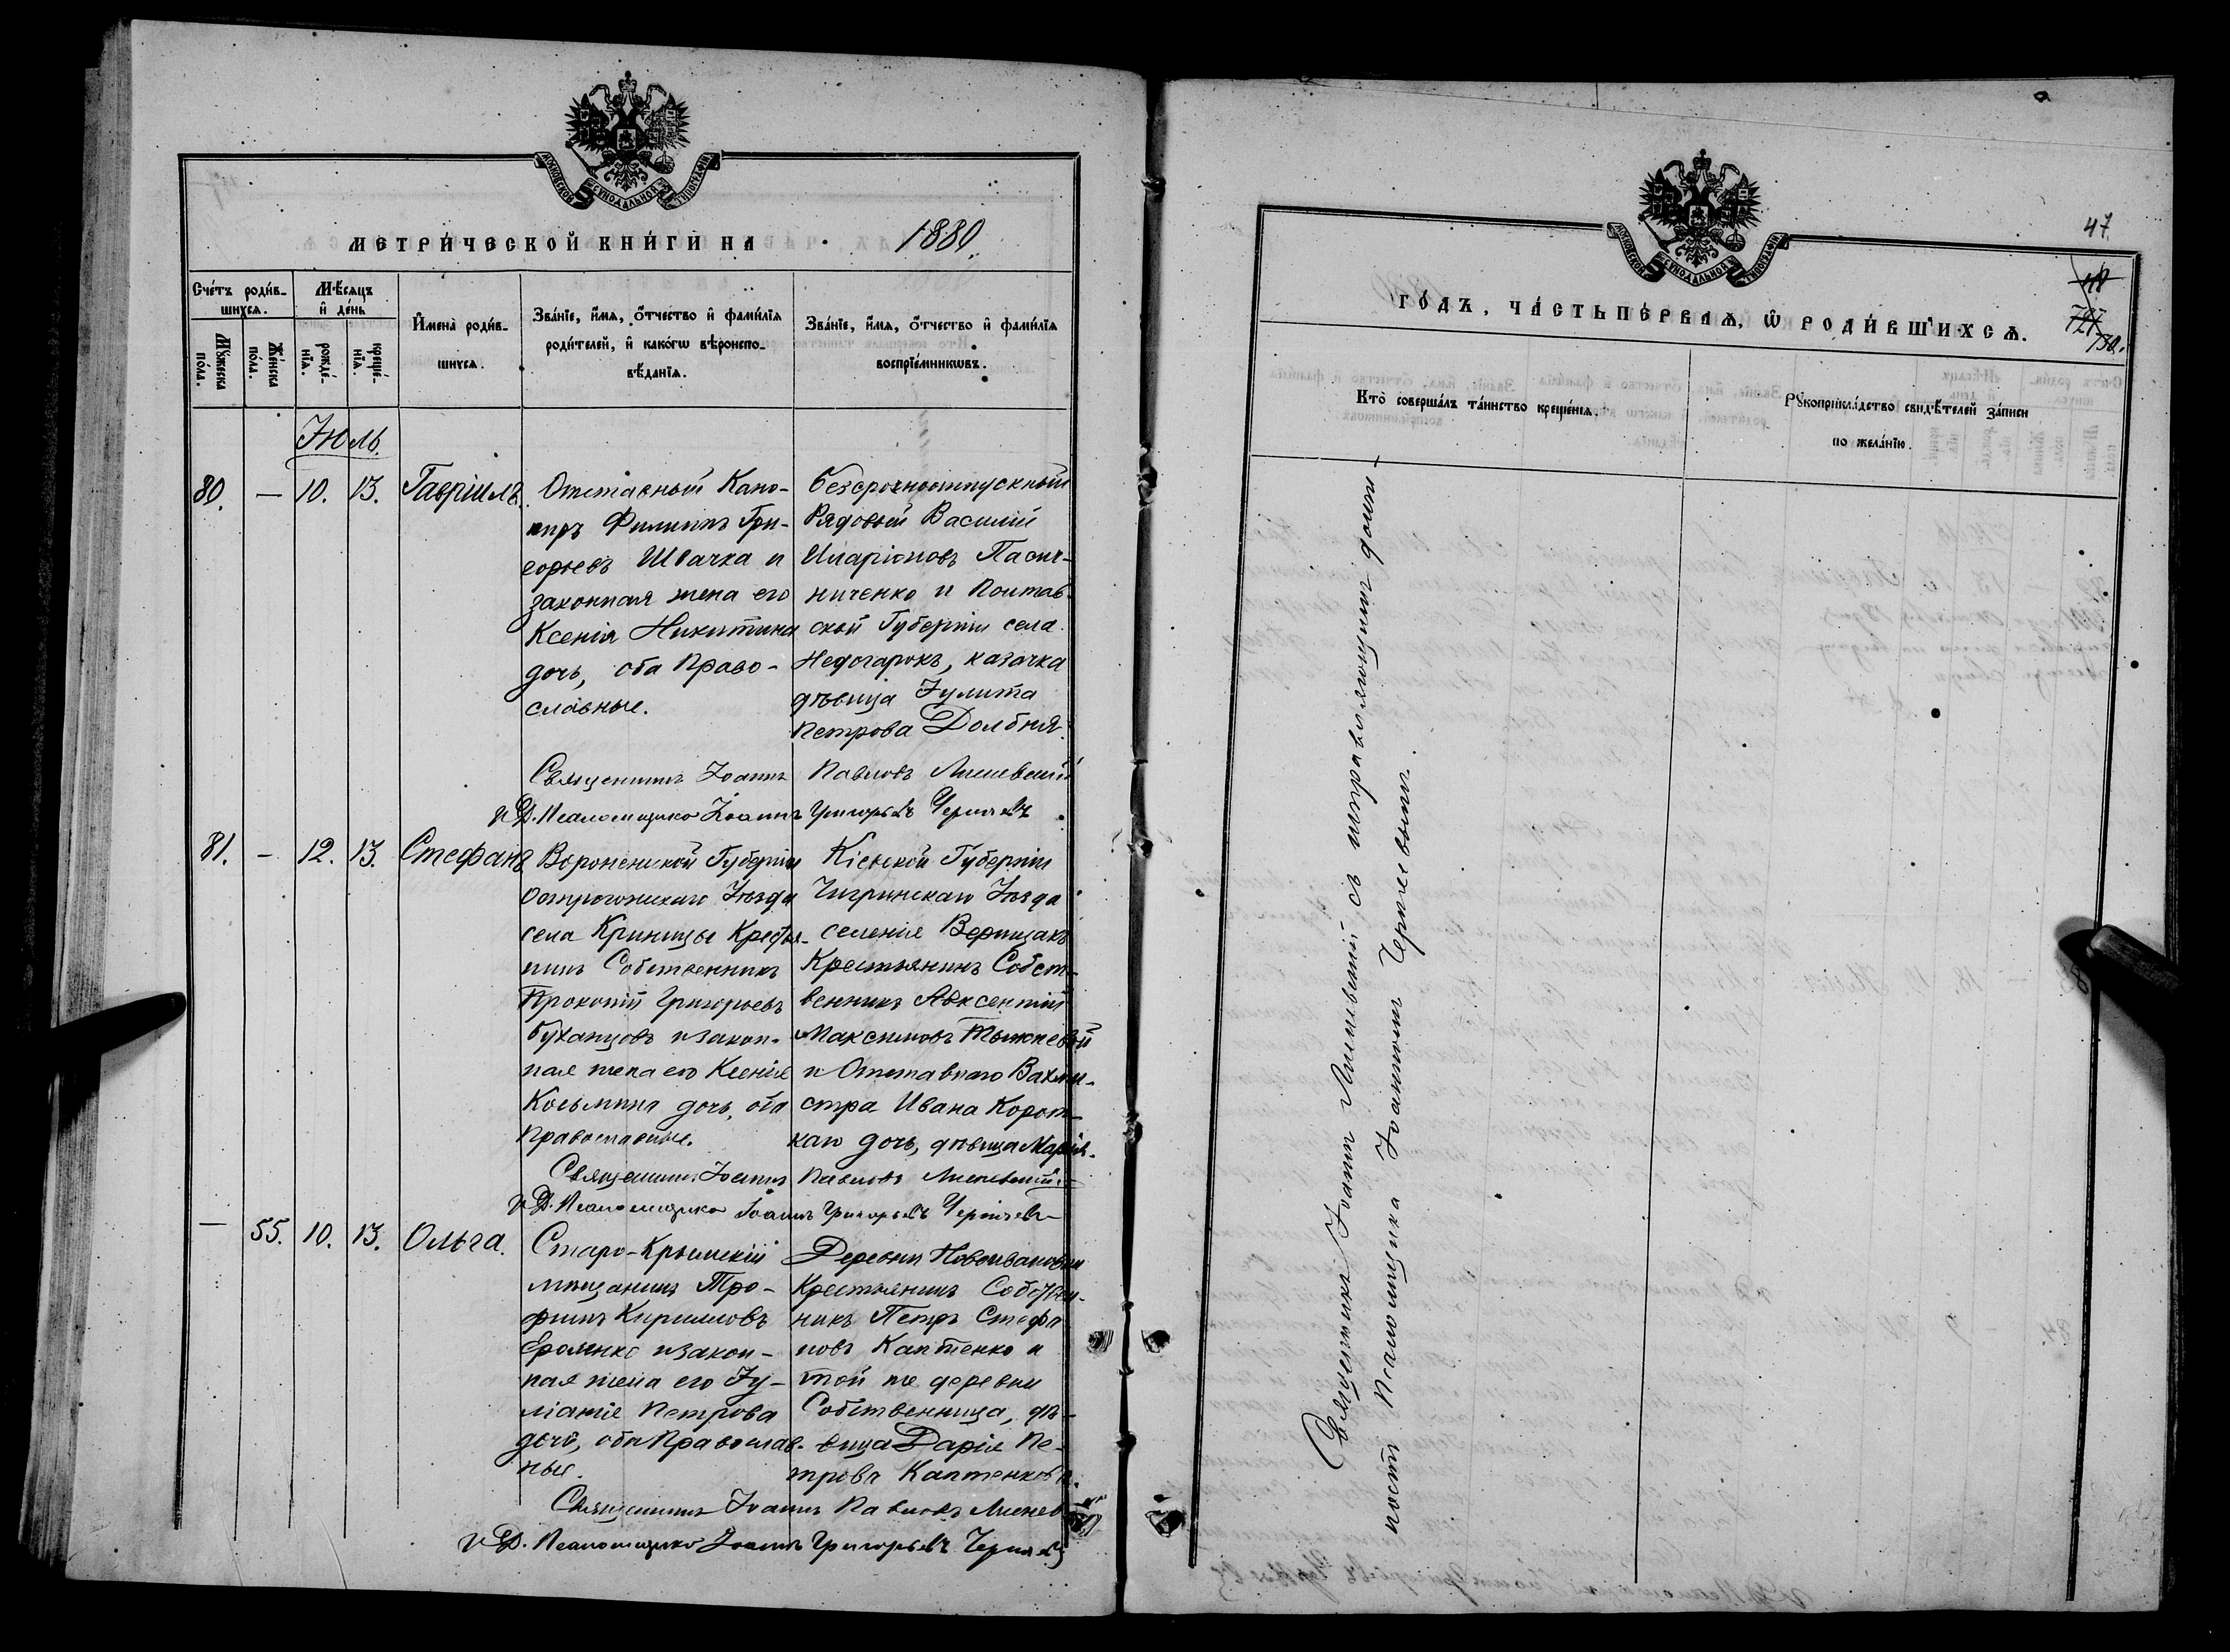 МОСКОВСКОЙ СѴНОДАЛЬНОЙ ТИПОГРАФІИ
МЕТРИ́ЧЕСКОЙ КНИ́ГИ НА 1880.
Сче́тъ роди́в-
шихсѧ.
Мѣ́сяцъ
и҆ де́нь
Мꙋ́жеска
по́ла.
Же́нска
по́ла.
рожде́-
нїѧ.
креще́-
нїѧ.
И҆мена̀ роди́в-
шихсѧ.
Зва́нїе, и҆́мѧ, ѻ҆́тчество и҆ фами́лїѧ
роди́телей, и҆ како́гѡ вѣроиспо-
вѣ́данїѧ.
Зва́нїе, и҆́мѧ, ѻ҆́тчество и҆ фами́лїѧ
воспрїе́мникѡвъ.
Іюль.
80. — 10. 13. Гавріилъ.
Отставный Кано-
ниръ Филиппъ Гри-
горьевъ Швачка и
законная жена его
Ксенія Никитина
дочь, оба Право-
славные.
безсрочноотпускный
Рядовый Василій
Иларіоновъ Пасич-
ниченко и Полтав-
ской Губерніи села
Недогарокъ, казачка
дѣвица Іулита
Петрова Долбня.
Священникъ Іоаннъ Павловъ Линевскій
И. Д. Псаломщика Іоаннъ Григорьевъ Черняевъ
81. — 12. 13. Стефанъ
Воронежской Губерніи
Острогожскаго Уѣзда
села Криницы Крестья-
нинъ Собственникъ
Прокопій Григорьевъ
Буханцовъ и закон-
ная жена его Ксенія
Косьмина дочь, оба
Православные.
Кіевской Губерніи
Чигринскаго Уѣзда
селенія Вершацъ
Крестьянинъ Собст-
венникъ Авксентій
Максимовъ
и Отставнаго Вахми-
стра Ивана Корот-
каго дочь, дѣвица Марія.
Священникъ Іоаннъ Павловъ Линевскій
И. Д. Псаломщика Іоаннъ Григорьевъ Черняевъ
— 55. 10. 13. Ольга.
Старо-Крымскій
мѣщанинъ Тро-
фимъ Кирилловъ
Ероменко и закон-
ная жена его Іу-
ліанія Петрова
дочь, оба Православ-
ные.
Деревни Новоивановки
Крестьянинъ Собствен-
никъ Петръ Стефа-
новъ Каптенко и
той же деревни
Собственница, дѣ-
вица Дарія Пе-
трова Каптенкова.
Священникъ Іоаннъ Павловъ Линев
И. Д. Псаломщика Іоаннъ Григорьевъ Черняевъ
47
МОСКОВСКОЙ СѴНОДАЛЬНОЙ ТИПОГРАФІИ
130.
ГО́ДЪ, ЧА́СТЬ ПЕ́РВАѦ, Ѡ҆ РОДИ́ВШИХСѦ.
Кто̀ соверша́лъ та́инство креще́нїѧ.
Рꙋкоприкла́дство свидѣ́телей за́писи
по жела́нїю.
Священникъ Іоаннъ Линевскій съ исправляющимъ долж-
ность Псаломщика Іоанномъ Черняевымъ.